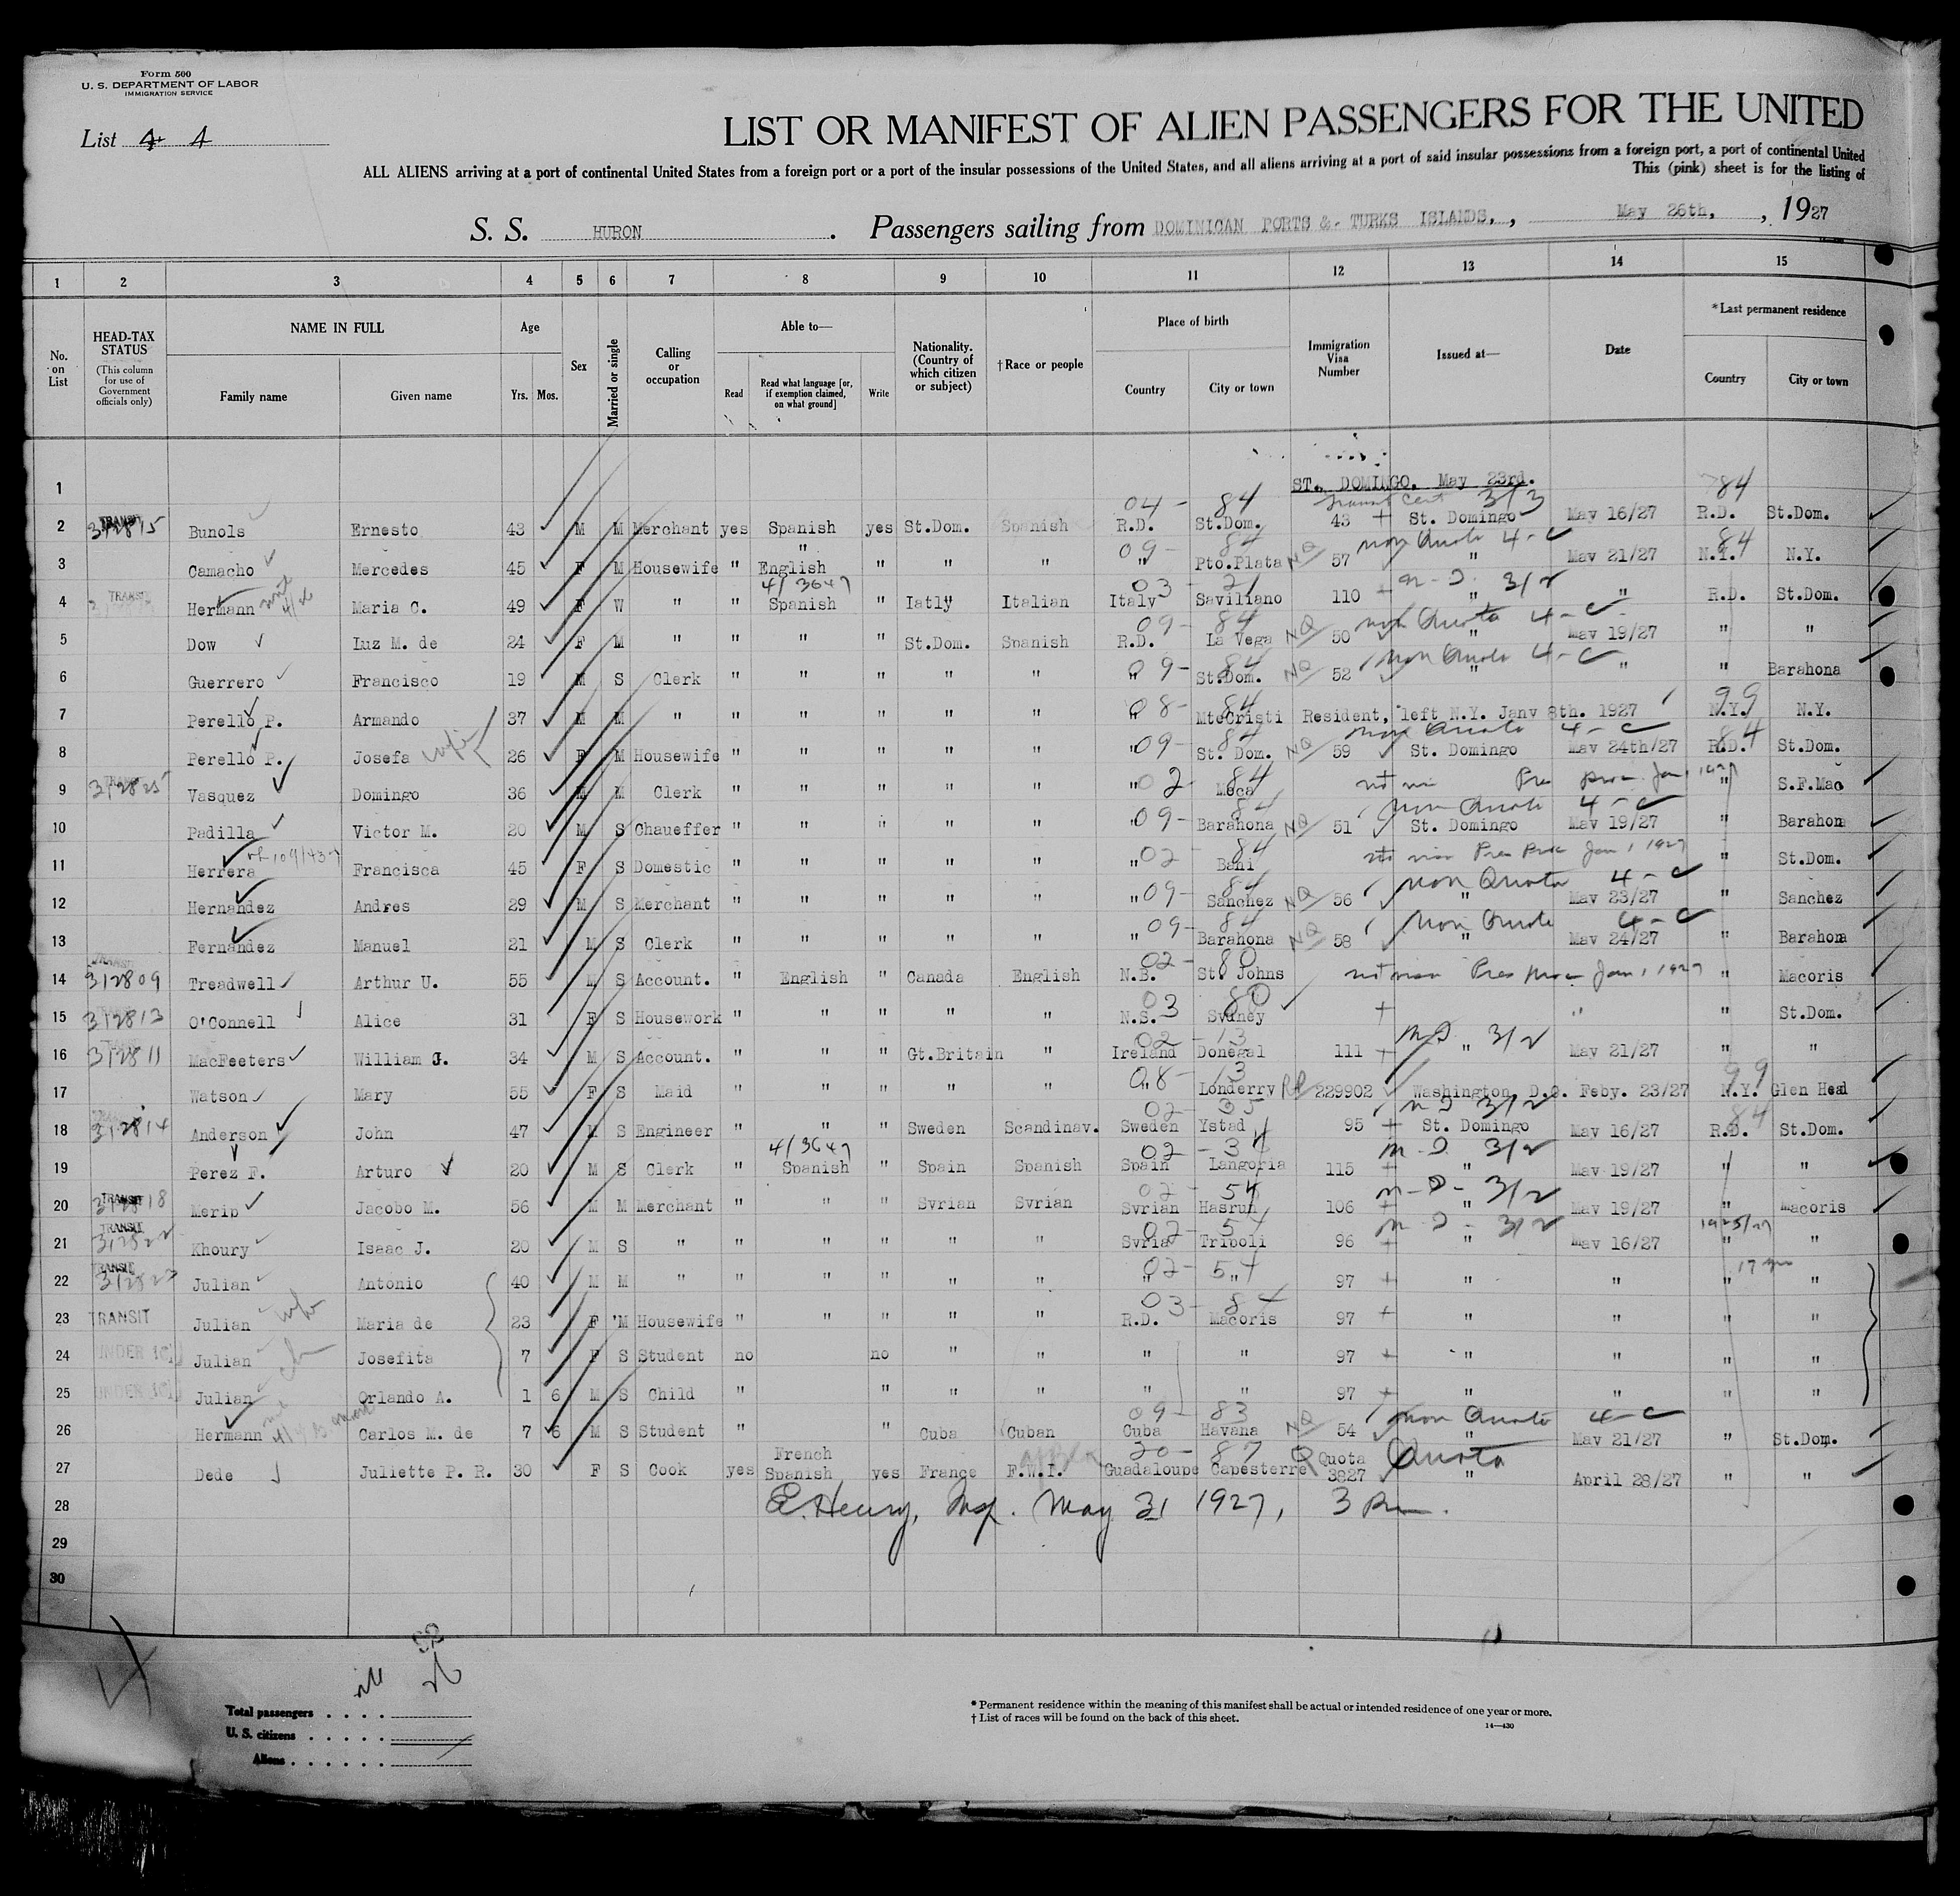 Form 500
U. S. DEPARTMENT OF LABOR
IMMIGRATION SERVICE
List 4 4
LIST OR MANIFEST OF ALIEN PASSENGERS FOR THE UNITED
ALL ALIENS arriving at a port of continental United States from a foreign port or a port of the insular possessions of the United States, and all aliens arriving at a port of said insular possessions from a foreign port, a port of continental United
This (pink) sheet is for the listing of
S. S. HURON. Passengers sailing from DOMINICAN PORTS &. TURKS ISLANDS., , May 26th, , 1927
1 2 3 4 5 6 7 8 9 10 11 12 13 14 15
No. on List
HEAD-TAX STATUS (This column for use of Government officials only)
NAME IN FULL
Family name Given name
Age
Yrs. Mos.
Sex
Married or single
Calling or occupation
Able to—
Read
Read what language [or, if exemption claimed, on what ground]
Write
Nationality. (Country of which citizen or subject)
†Race or people
Place of birth
Country City or town
Immigration Visa Number
Issued at—
Date
*Last permanent residence
Country City or town
1 ST. DOMINGO. May 23rd.
04 - 84 Transit Cert 3/3 84
2 TRANSIT 312815 Bunols Ernesto 43 M M Merchant yes Spanish yes St.Dom. Spanish R.D. St.Dom. 43 St. Domingo May 16/27 R.D. St.Dom.
09 - 84 NQ non Quota 4-C 84
3 Camacho Mercedes 45 F M Housewife " " English " " " " Pto.Plata 57 " May 21/27 N.Y. N.Y.
4/3647 03 - 21 3/2
4 TRANSIT Hermann Maria C. 49 F W " " Spanish " Iatly Italian Italy Saviliano 110 " " R.D. St.Dom.
09 - 84 NQ non Quota 4-C
5 Dow Luz M. de 24 F M " " " " St.Dom. Spanish R.D. La Vega 50 " May 19/27 " "
09 - 84 NQ non Quota 4-C
6 Guerrero Francisco 19 M S Clerk " " " " " " St.Dom. 52 " " " Barahona
08 - 84 99
7 Perello P. Armando 37 M M " " " " " " " MteCristi Resident, left N.Y. Janv 8th. 1927 N.Y. N.Y.
09 - 84 NQ non Quota 4-C 84
8 Perello P. Josefa wife 26 F M Housewife " " " " " " St. Dom. 59 St. Domingo May 24th/27 R.D. St.Dom.
02 84 Pres Proc. Jan 1 1927
9 TRANSIT 312825 Vasquez Domingo 36 M M Clerk " " " " " " Moca " S.F.Mac
09 - 84 NQ non Quota 4-C
10 Padilla Victor M. 20 M S Chaueffer " " " " " " Barahona 51 St. Domingo May 19/27 " Barahona
02 84 Pres Proc Jan 1 1927
11 Herrera Francisca 45 F S Domestic " " " " " " Bani " St.Dom.
09 - 84 NQ non Quota 4-C
12 Hernandez Andres 29 M S Merchant " " " " " " Sanchez 56 " May 23/27 " Sanchez
09 - 84 NQ Non Quota 4-C
13 Fernandez Manuel 21 M S Clerk " " " " " " Barahona 58 " May 24/27 " Barahona
02 - 80 Pres Proc Jan 1 1927
14 TRANSIT 312809 Treadwell Arthur U. 55 M S Account. " English " Canada English N.B. St. Johns " Macoris
03 80
15 312813 O'Connell Alice 31 F S Housework " " " " " N.S. Sydney " " St.Dom.
02 - 13 3/2
16 312811 MacFeeters William J. 34 M S Account. " " " Gt.Britain " Ireland Donegal 111 " May 21/27 " "
08 - 13 99
17 Watson Mary 55 F S Maid " " " " " " Londerry 229902 Washington, D.C. Feby. 23/27 N.Y. Glen Head
02 - 35 3/2 84
18 312814 Anderson John 47 M S Engineer " " " Sweden Scandinav. Sweden Ystad 95 St. Domingo May 16/27 R.D. St.Dom.
4/3647 02 - 34 3/2
19 Perez F. Arturo 20 M S Clerk " Spanish " Spain Spanish Spain Langoria 115 " May 19/27 " "
02 - 54 3/2
20 TRANSIT 312818 Merip Jacobo M. 56 M M Merchant " " " Syrian Syrian Syrian Hasrun 106 " May 19/27 " Macoris
02 - 54 3/2
21 TRANSIT Khoury Isaac J. 20 M S " " " " " " Syria Tripoli 96 " May 16/27 " "
02 - 54
22 TRANSIT 312823 Julian Antonio 40 M M " " " " " " " " 97 " " " "
03 - 84
23 TRANSIT Julian wife Maria de 23 F M Housewife " " " " " R.D. Macoris 97 " " " "
24 UNDER 16 Julian ch Josefita 7 F S Student no no " " " " 97 " " " "
25 UNDER 16 Julian Orlando A. 1 6 M S Child " " " " " " 97 " " " "
09 - 83 NQ non Quota 4-C
26 Hermann Carlos M. de 7 6 M S Student " " Cuba Cuban Cuba Havana 54 " May 21/27 " St.Dom.
20 - 87 Q Quota
27 Dede Juliette P. R. 30 F S Cook yes French Spanish yes France F.W.I. Guadaloupe Capesterre Quota 3827 " April 28/27 " "
28 E. Henry, Insp. May 31 1927, 3 Pm.
29
30
Total passengers . . . .
U. S. citizens . . . . .
Aliens . . . . . .
* Permanent residence within the meaning of this manifest shall be actual or intended residence of one year or more.
† List of races will be found on the back of this sheet.
14—430